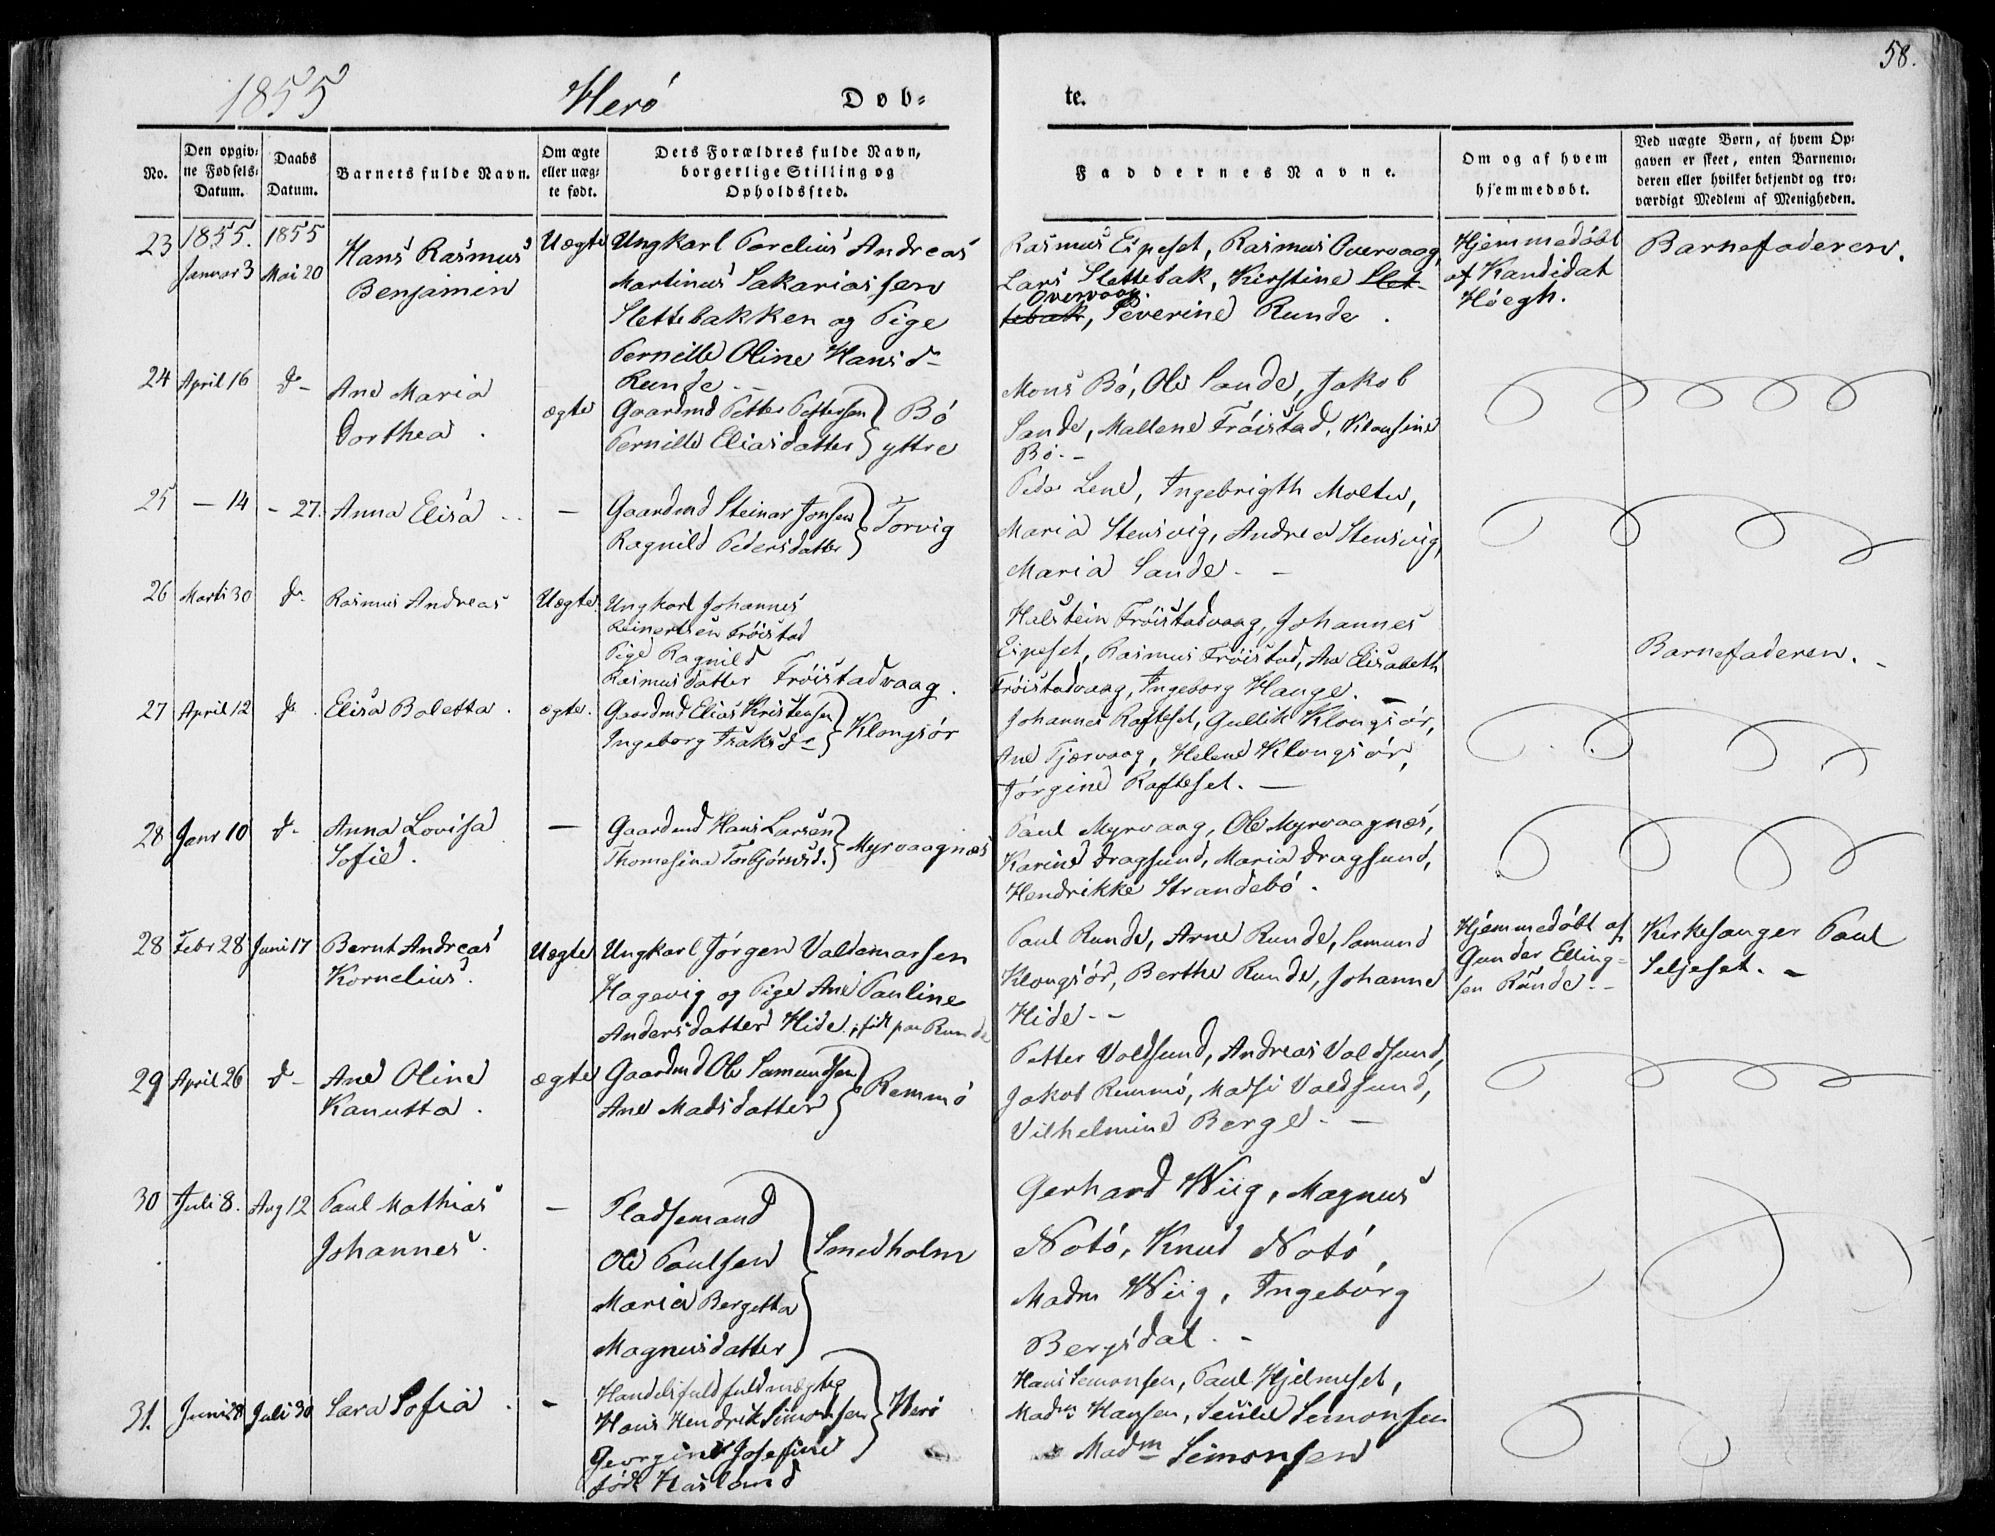 58.
1855 Herö Døb- te.
No.
Den opgiv-
ne Fødsels-
Datum.
Daabs
Datum.
Barnets fulde Navn.
Om ægte
eller uæg-
te født.
Dets Forældres fulde Navn,
borgerlige Stilling og
Opholdssted.
Faddernes Navne.
Om og af hvem
hjemmedøbt.
Ved uægte Børn, af hvem Op-
gaven er skeet, enten Barnemo-
deren eller hvilket bekjendt og tro-
værdigt Medlem af Menigheden.
23 1855. Januar 3 1855 Mai 20
Hans Rasmus
Benjamin
Uægte
Ungkarl Porelius Andreas
Martinus Sakariassen
Slettebakken og Pige
Pernille Oline Hansd-
Runde.-
Rasmus Eipeset, Rasmus Overvaag
Lars Slettebak, Kirstine Slet-
Overvaag.
tebak, Severine Runde.
Hjemmedöbt
af Kandidat
Höegh.
Barnefaderen.
24 April 16 d-
Ane Maria
Dorthea.
ægte
Gaardmd Petter Pettersen
Pernille Eliasdatter
Bö
yttre
Mons Bö, Ole Sande, Jakob
Sande, Mallene Fröistad, Klausine
Bö.-
25 - 14 - 27.
Anna Elisa
-
Gaardmd Steinar Jonsen
Ragnild Pedersdatter
Torvig
Peder Lene, Ingebrigth Moltu,
Maria Stensvig, Andrea Stensvig,
Maria Sande.-
26 Marts 30 d-
Rasmus Andreas
Uægte
Ungkarl Johannes
Reinertsen Fröistad
Pige Ragnild
Rasmusdatter Fröistadvaag.
Halstein Fröistadvaag, Johannes
Eipeset, Rasmus Fröistad, Ane Elisabeth
Fröistadvaag, Ingeborg Hauge.-
Barnefaderen.-
27 April 12 d-
Elisa Boletta.
ægte.
Gaardmd Elias Kristensen
Ingeborg Isaksd-
Klongsör
Johannes Rafteset, Gullik Klongsör,
Ane Tjærvaag, Helene Klongsör,
Jörgine Rafteset.-
28 Janr 10 d-
Anna Lovisa
Sofie.
-
Gaardmd Hans Larsen
Thomesina Torbjörnsd.
Myrvaagnæs
Paul Myrvaag, Ole Myrvaagnæs,
Karine Dragsund, Maria Dragsund,
Hendrikke Strandebö.
28 Febr 28 Juni 17
Bernt Andreas
Kornelius.
Uægte
Ungkarl Jörgen Valdemarsen
Hagevig og Pige Ane Pauline
Andersdatter Hide, født paa Runde
Paul Runde, Arne Runde, Samund
Klongsör, Berthe Runde, Johanne
Hide.-
Hjemmedöbt af
Gunder Elling-
sen Runde.-
Kirkesanger Paul
Seljeset.-
29 April 26 d-
Ane Oline
Kanutta.
ægte
Gaardmd Ole Samundsen
Ane Madsdatter
Remmö
Petter Voldsund, Andreas Voldsund,
Jakob Remmö, Madsi Voldsund,
Vilhelmine Berge.-
30 Juli 8. Aug 12
Paul Mathias
Johannes.
-
Pladsemand
Ole Paulsen
Maria Bergetta
Magnusdatter
Smedholm
Gerhard Wiig, Magnus
Notö, Knud Notö,
Madm Wiig, Ingeborg
Bergsdal.-
31. Juni 28 Juli 30
Sara Sofia.
-
Hans Hendrik Simonsen
Georgine Josefine
født Hasland
Herö
Hans Semonsen, Paul Hjelmeset,
Madm Hansen, Semonsen
Madm Simonsen